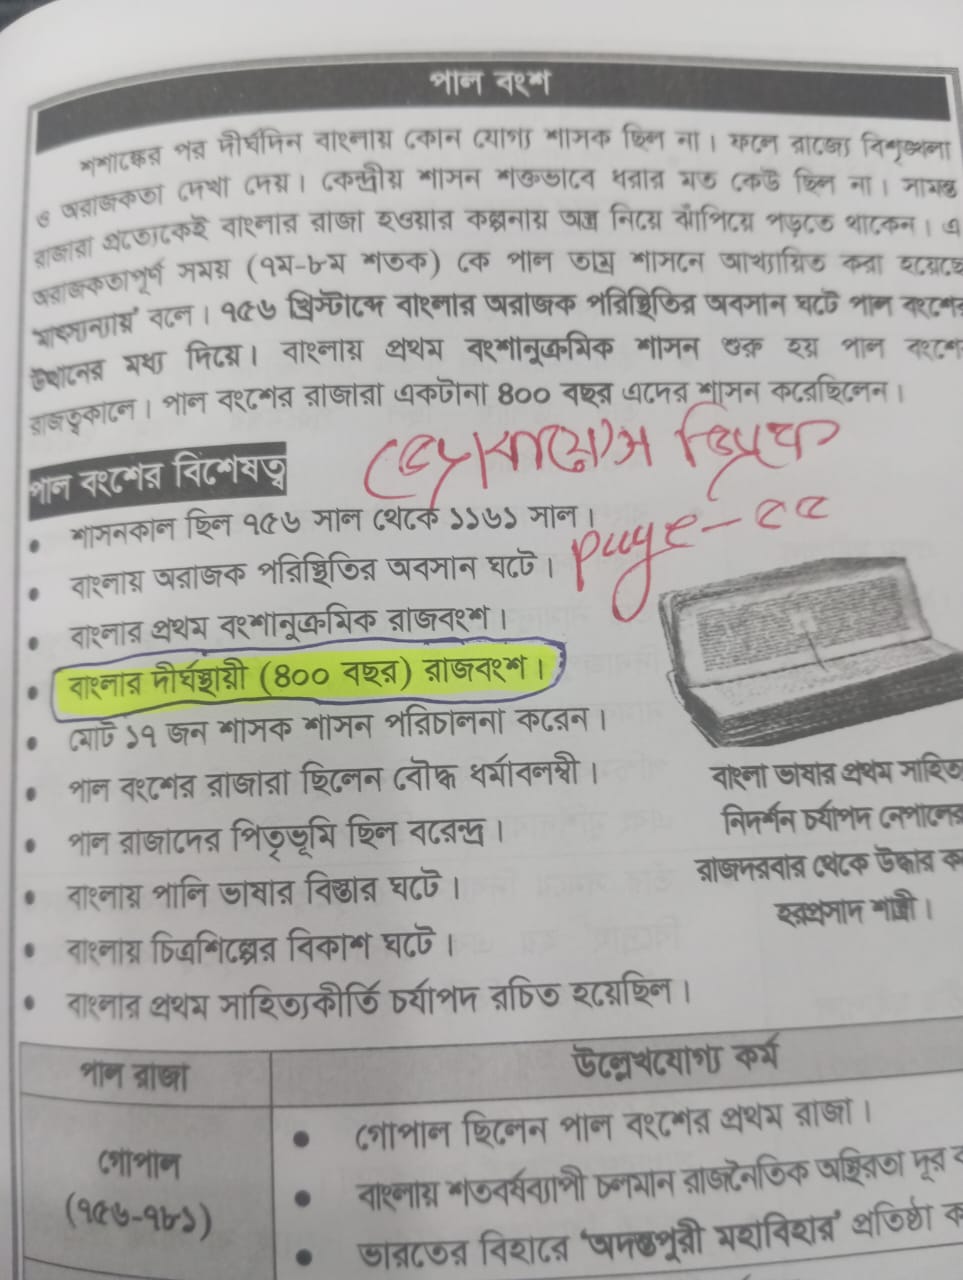 পাল বংশ
শশাঙ্কের পর দীর্ঘদিন বাংলায় কোন যোগ্য শাসক ছিল না। ফলে রাজ্যে বিশৃঙ্খলা
ও অরাজকতা দেখা দেয়। কেন্দ্রীয় শাসন শক্তভাবে ধরার মত কেউ ছিল না। সামন্ত
রাজারা প্রত্যেকেই বাংলার রাজা হওয়ার কল্পনায় অস্ত্র নিয়ে ঝাঁপিয়ে পড়তে থাকেন। এ
অরাজকতাপূর্ণ সময় (৭ম-৮ম শতক) কে পাল তাম্র শাসনে আখ্যায়িত করা হয়েছে
মাৎস্যন্যায়' বলে। ৭৫৬ খ্রিস্টাব্দে বাংলার অরাজক পরিস্থিতির অবসান ঘটে পাল বংশের
উত্থানের মধ্য দিয়ে। বাংলায় প্রথম বংশানুক্রমিক শাসন শুরু হয় পাল বংশের
রাজত্বকালে। পাল বংশের রাজারা একটানা ৪০০ বছর এদের শাসন করেছিলেন।
পাল বংশের বিশেষত্ব
• শাসনকাল ছিল ৭৫৬ সাল থেকে ১১৬১ সাল।
page-৫৫
• বাংলায় অরাজক পরিস্থিতির অবসান ঘটে।
• বাংলার প্রথম বংশানুক্রমিক রাজবংশ।
• বাংলার দীর্ঘস্থায়ী (৪০০ বছর) রাজবংশ।
• মোট ১৭ জন শাসক শাসন পরিচালনা করেন।
• পাল বংশের রাজারা ছিলেন বৌদ্ধ ধর্মাবলম্বী।
• পাল রাজাদের পিতৃভূমি ছিল বরেন্দ্র।
• বাংলায় পালি ভাষার বিস্তার ঘটে।
• বাংলায় চিত্রশিল্পের বিকাশ ঘটে।
• বাংলার প্রথম সাহিত্যকীর্তি চর্যাপদ রচিত হয়েছিল।
বাংলা ভাষার প্রথম সাহিত্য
নিদর্শন চর্যাপদ নেপালের
রাজদরবার থেকে উদ্ধার ক
হরপ্রসাদ শাস্ত্রী।
পাল রাজা
উল্লেখযোগ্য কর্ম
গোপাল
(৭৫৬-৭৮১)
• গোপাল ছিলেন পাল বংশের প্রথম রাজা।
• বাংলায় শতবর্ষব্যাপী চলমান রাজনৈতিক অস্থিরতা দূর ক
• ভারতের বিহারে 'অদন্তপুরী মহাবিহার' প্রতিষ্ঠা ক